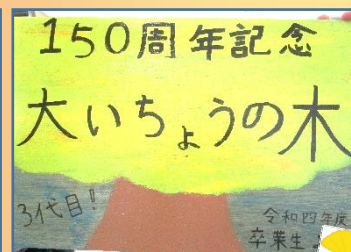 150周年記念
大いちょうの木
3代目!
令和四年度
卒業生